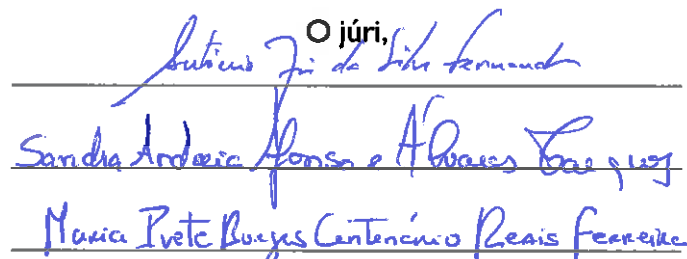 O júri,
António José da Silva Fernandes
Sandra Andreia Afonso e Álvares
Maria Ivete Borges Centenário Reais Ferreira